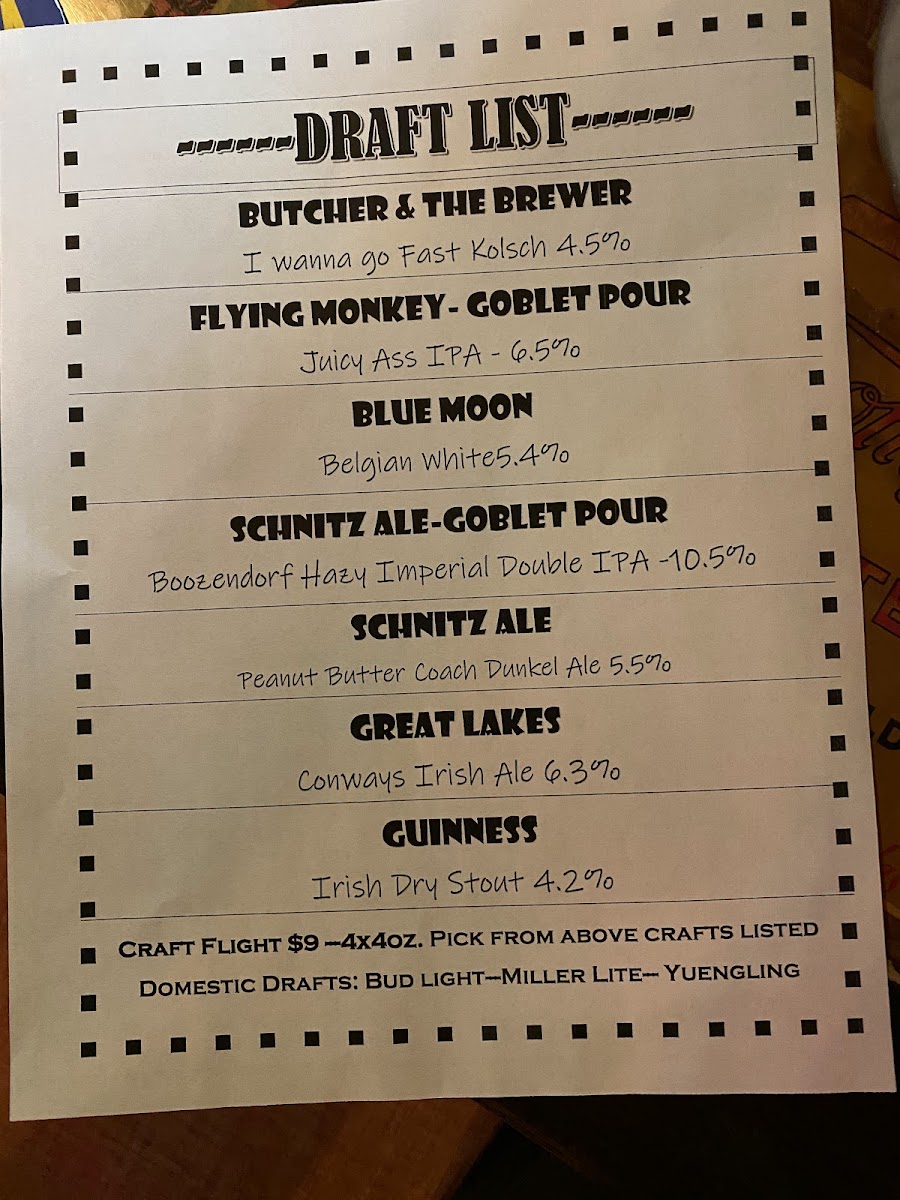 ------DRAFT LIST------
BUTCHER & THE BREWER
I wanna go Fast Kolsch 4.5%
FLYING MONKEY- GOBLET POUR
Juicy Ass IPA - 6.5%
BLUE MOON
Belgian White5.4%
SCHNITZ ALE-GOBLET POUR
Boozendorf Hazy Imperial Double IPA -10.5%
SCHNITZ ALE
Peanut Butter Coach Dunkel Ale 5.5%
GREAT LAKES
Conways Irish Ale 6.3%
GUINNESS
Irish Dry Stout 4.2%
CRAFT FLIGHT $9 —4X4OZ. PICK FROM ABOVE CRAFTS LISTED
DOMESTIC DRAFTS: BUD LIGHT—MILLER LITE— YUENGLING